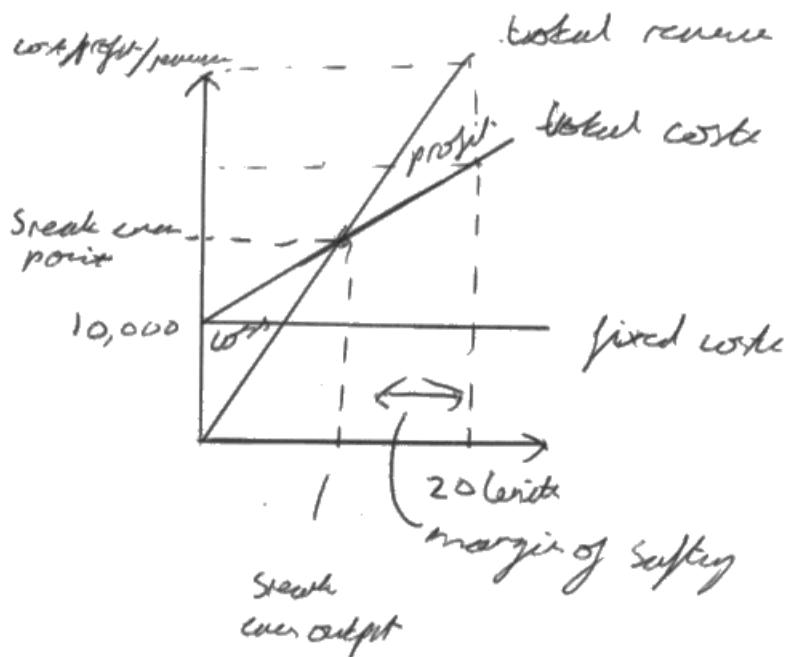 cost/profit/revenue
total revenue
total costs
profit
Break even
point
10,000
loss
fixed costs
20 units
margin of saftey
break
even output